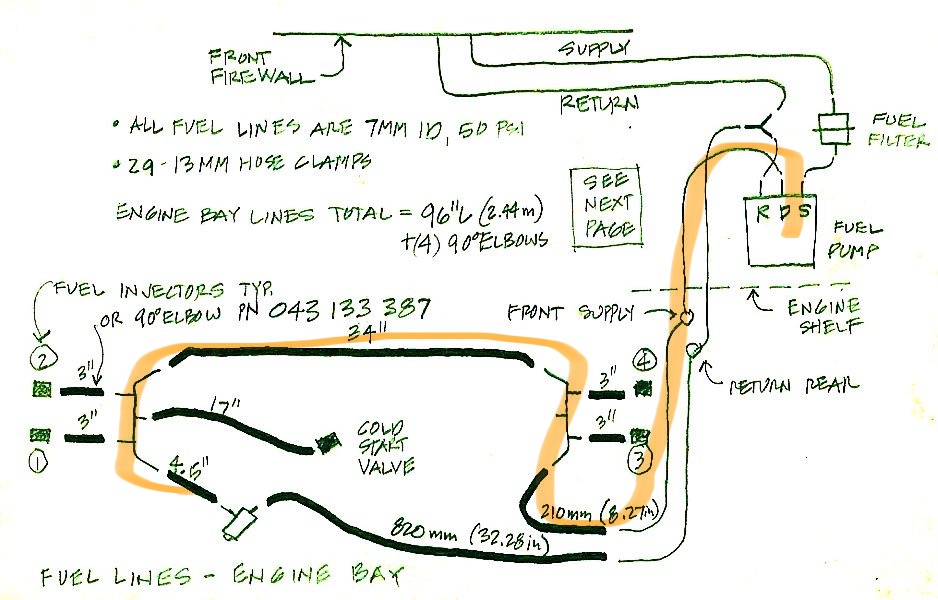 FRONT
FIREWALL
SUPPLY
RETURN
FUEL
FILTER
• ALL FUEL LINES ARE 7MM ID, 50 PSI
• 29-13MM HOSE CLAMPS
ENGINE BAY LINES TOTAL = 96"L (2.44m)
+(4) 90° ELBOWS
SEE
NEXT
PAGE
R D S
FUEL
PUMP
ENGINE
SHELF
FUEL INJECTORS TYP.
OR 90° ELBOW PN 043 133 387
FRONT SUPPLY
RETURN REAR
34"
2
3"
3"
1
17"
COLD
START
VALVE
4.5"
4
3"
3"
3
210mm (8.27in)
820mm (32.28in)
FUEL LINES - ENGINE BAY